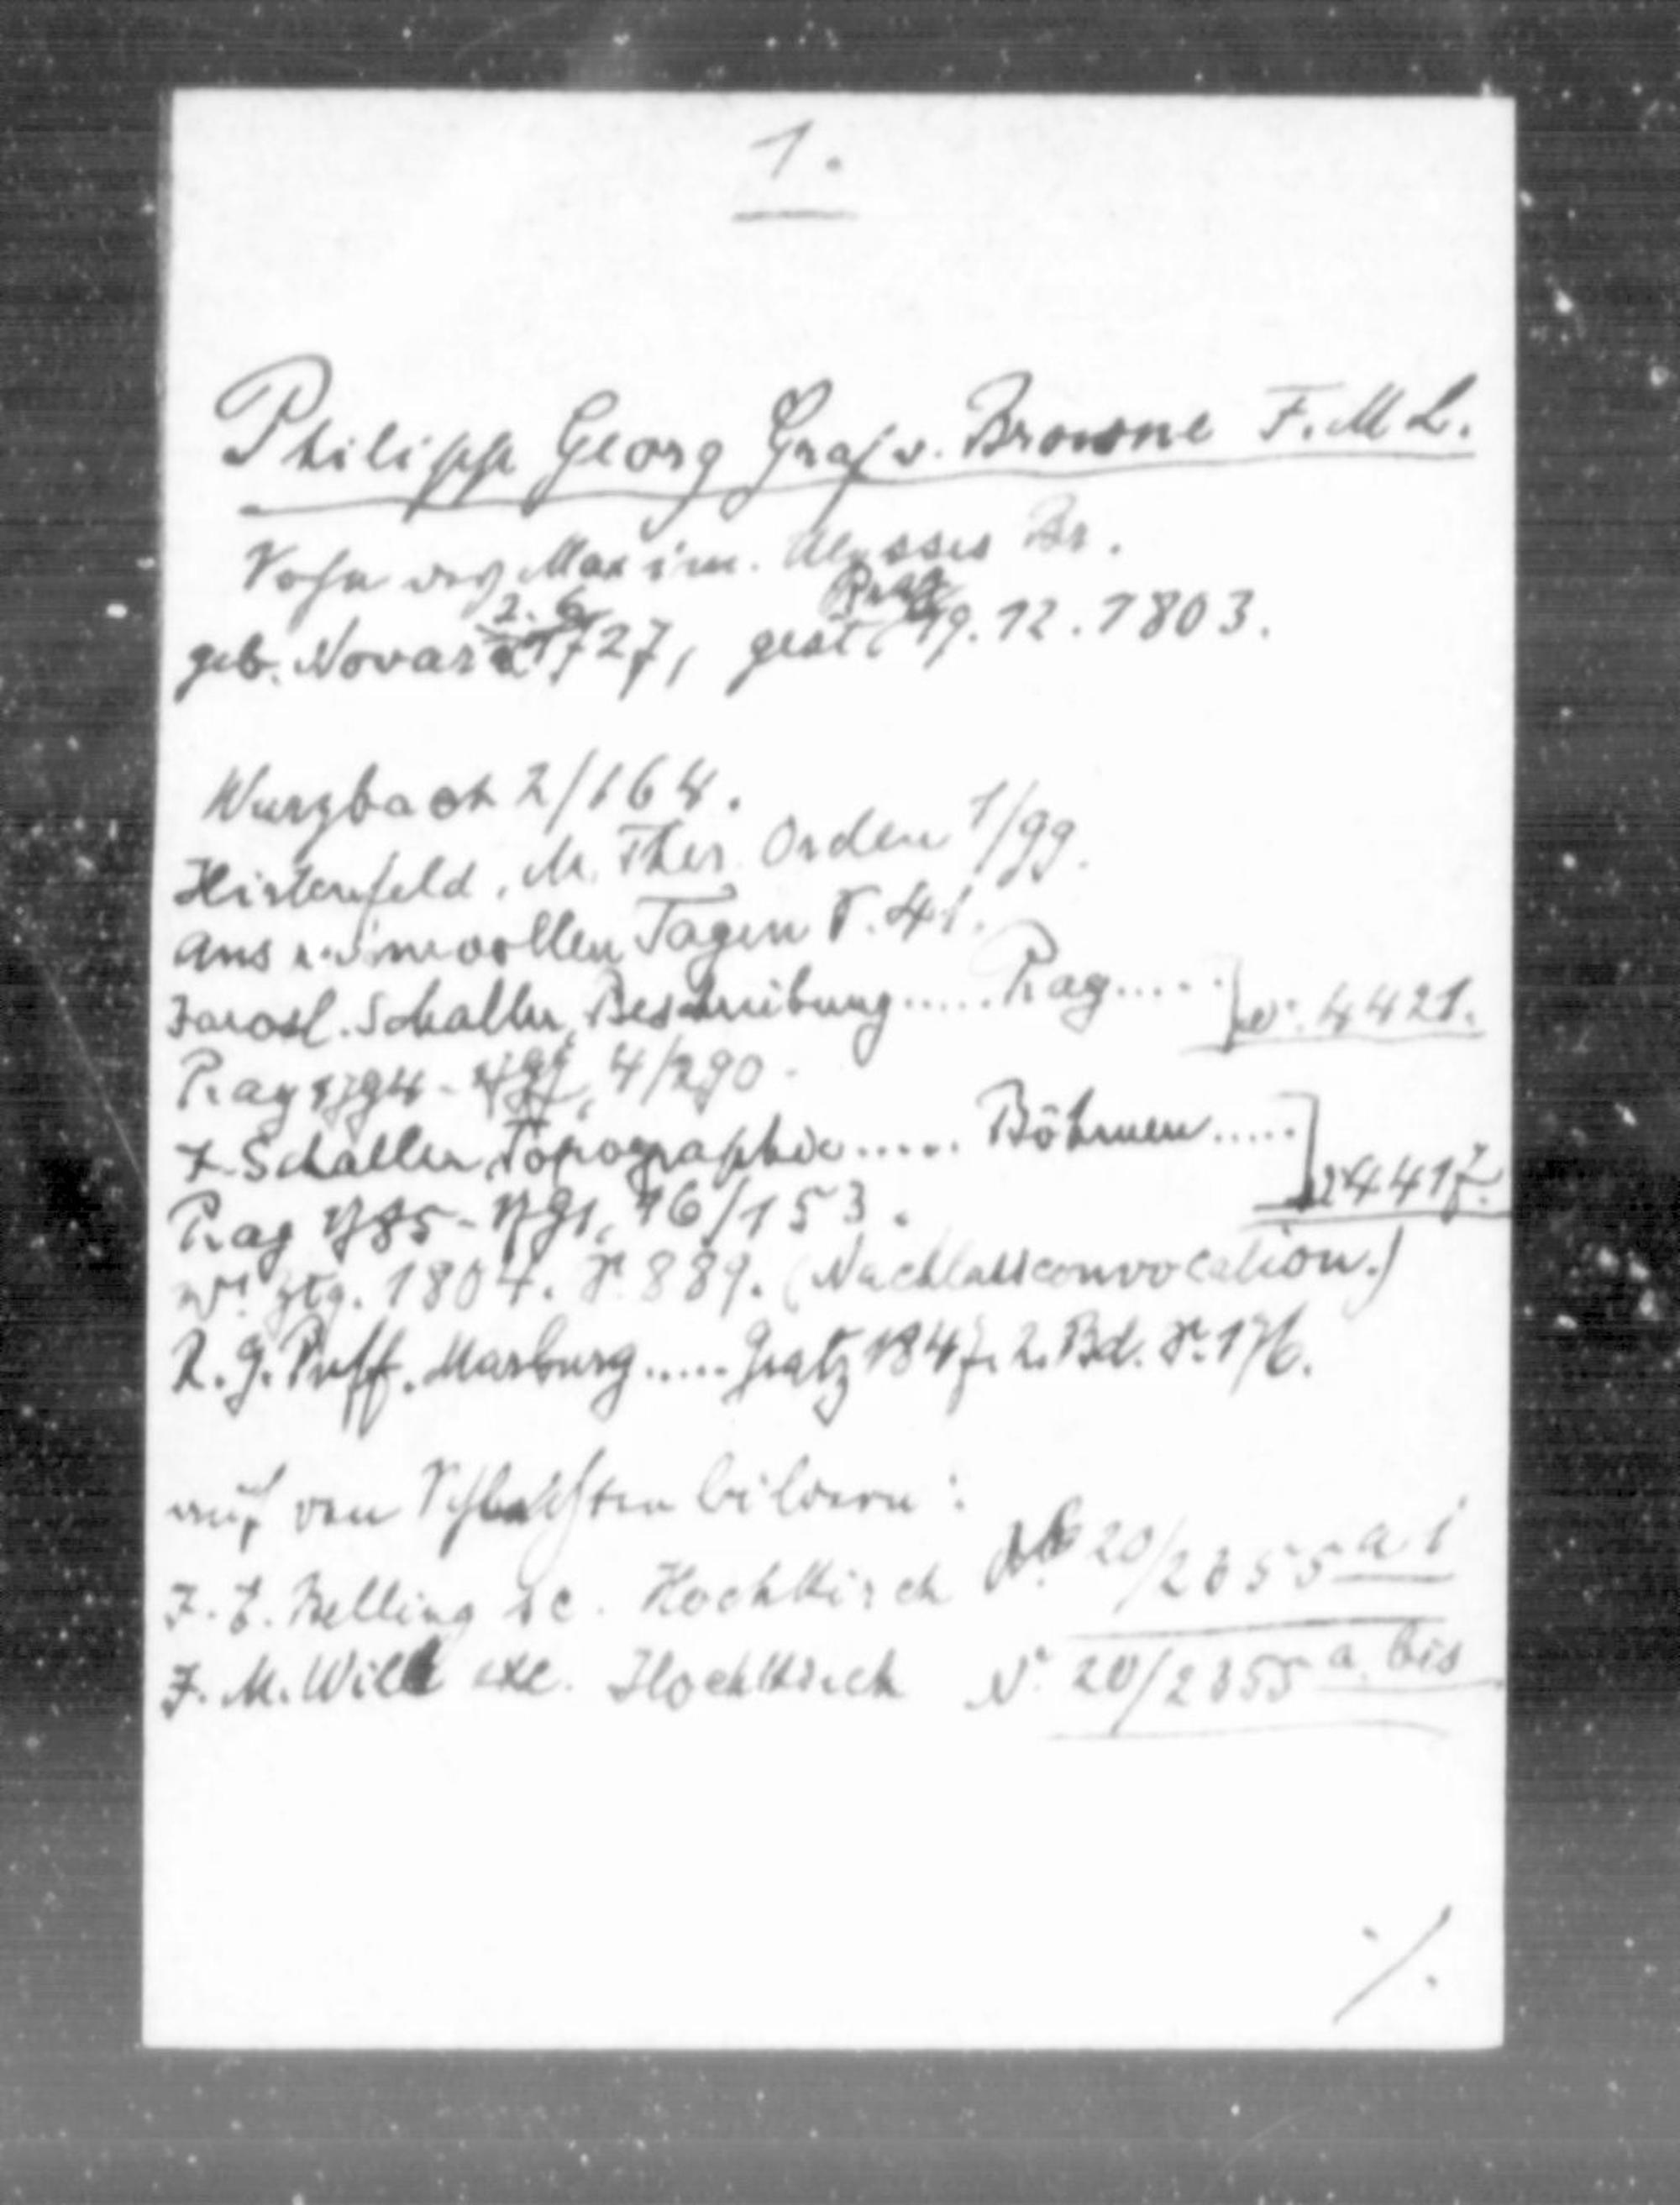 1.
Philipp Georg Graf v. Browne F.M.L.
Sohn des Maxim. Ulysses Br.
geb. Novara 2.6. 1727, gest. Prag 19.12.1803.
Wurzbach 2/164.
Hirtenfeld, M. Ther. Orden 1/99.
Aus ruhmvollen Tagen S. 41.
Jarosl. Schaller, Beschreibung..... Prag..... N° 4421.
Prag 1794-1797, 4/290.
J. Schaller, Topographie..... Böhmen.....
Prag 1785-1791, 16/153. 4417.
Wr. Ztg. 1804. S. 889. (Nachlassconvocation.)
R. G. Puff, Marburg..... Gratz 1847. 2. Bd. S. 176.
auf den Schlachtenbildern:
J. E. Belling sc. Hochkirch N° 20/2355 a 1
J. M. Will exc. Hochkirch N° 20/2355 a bis
./.